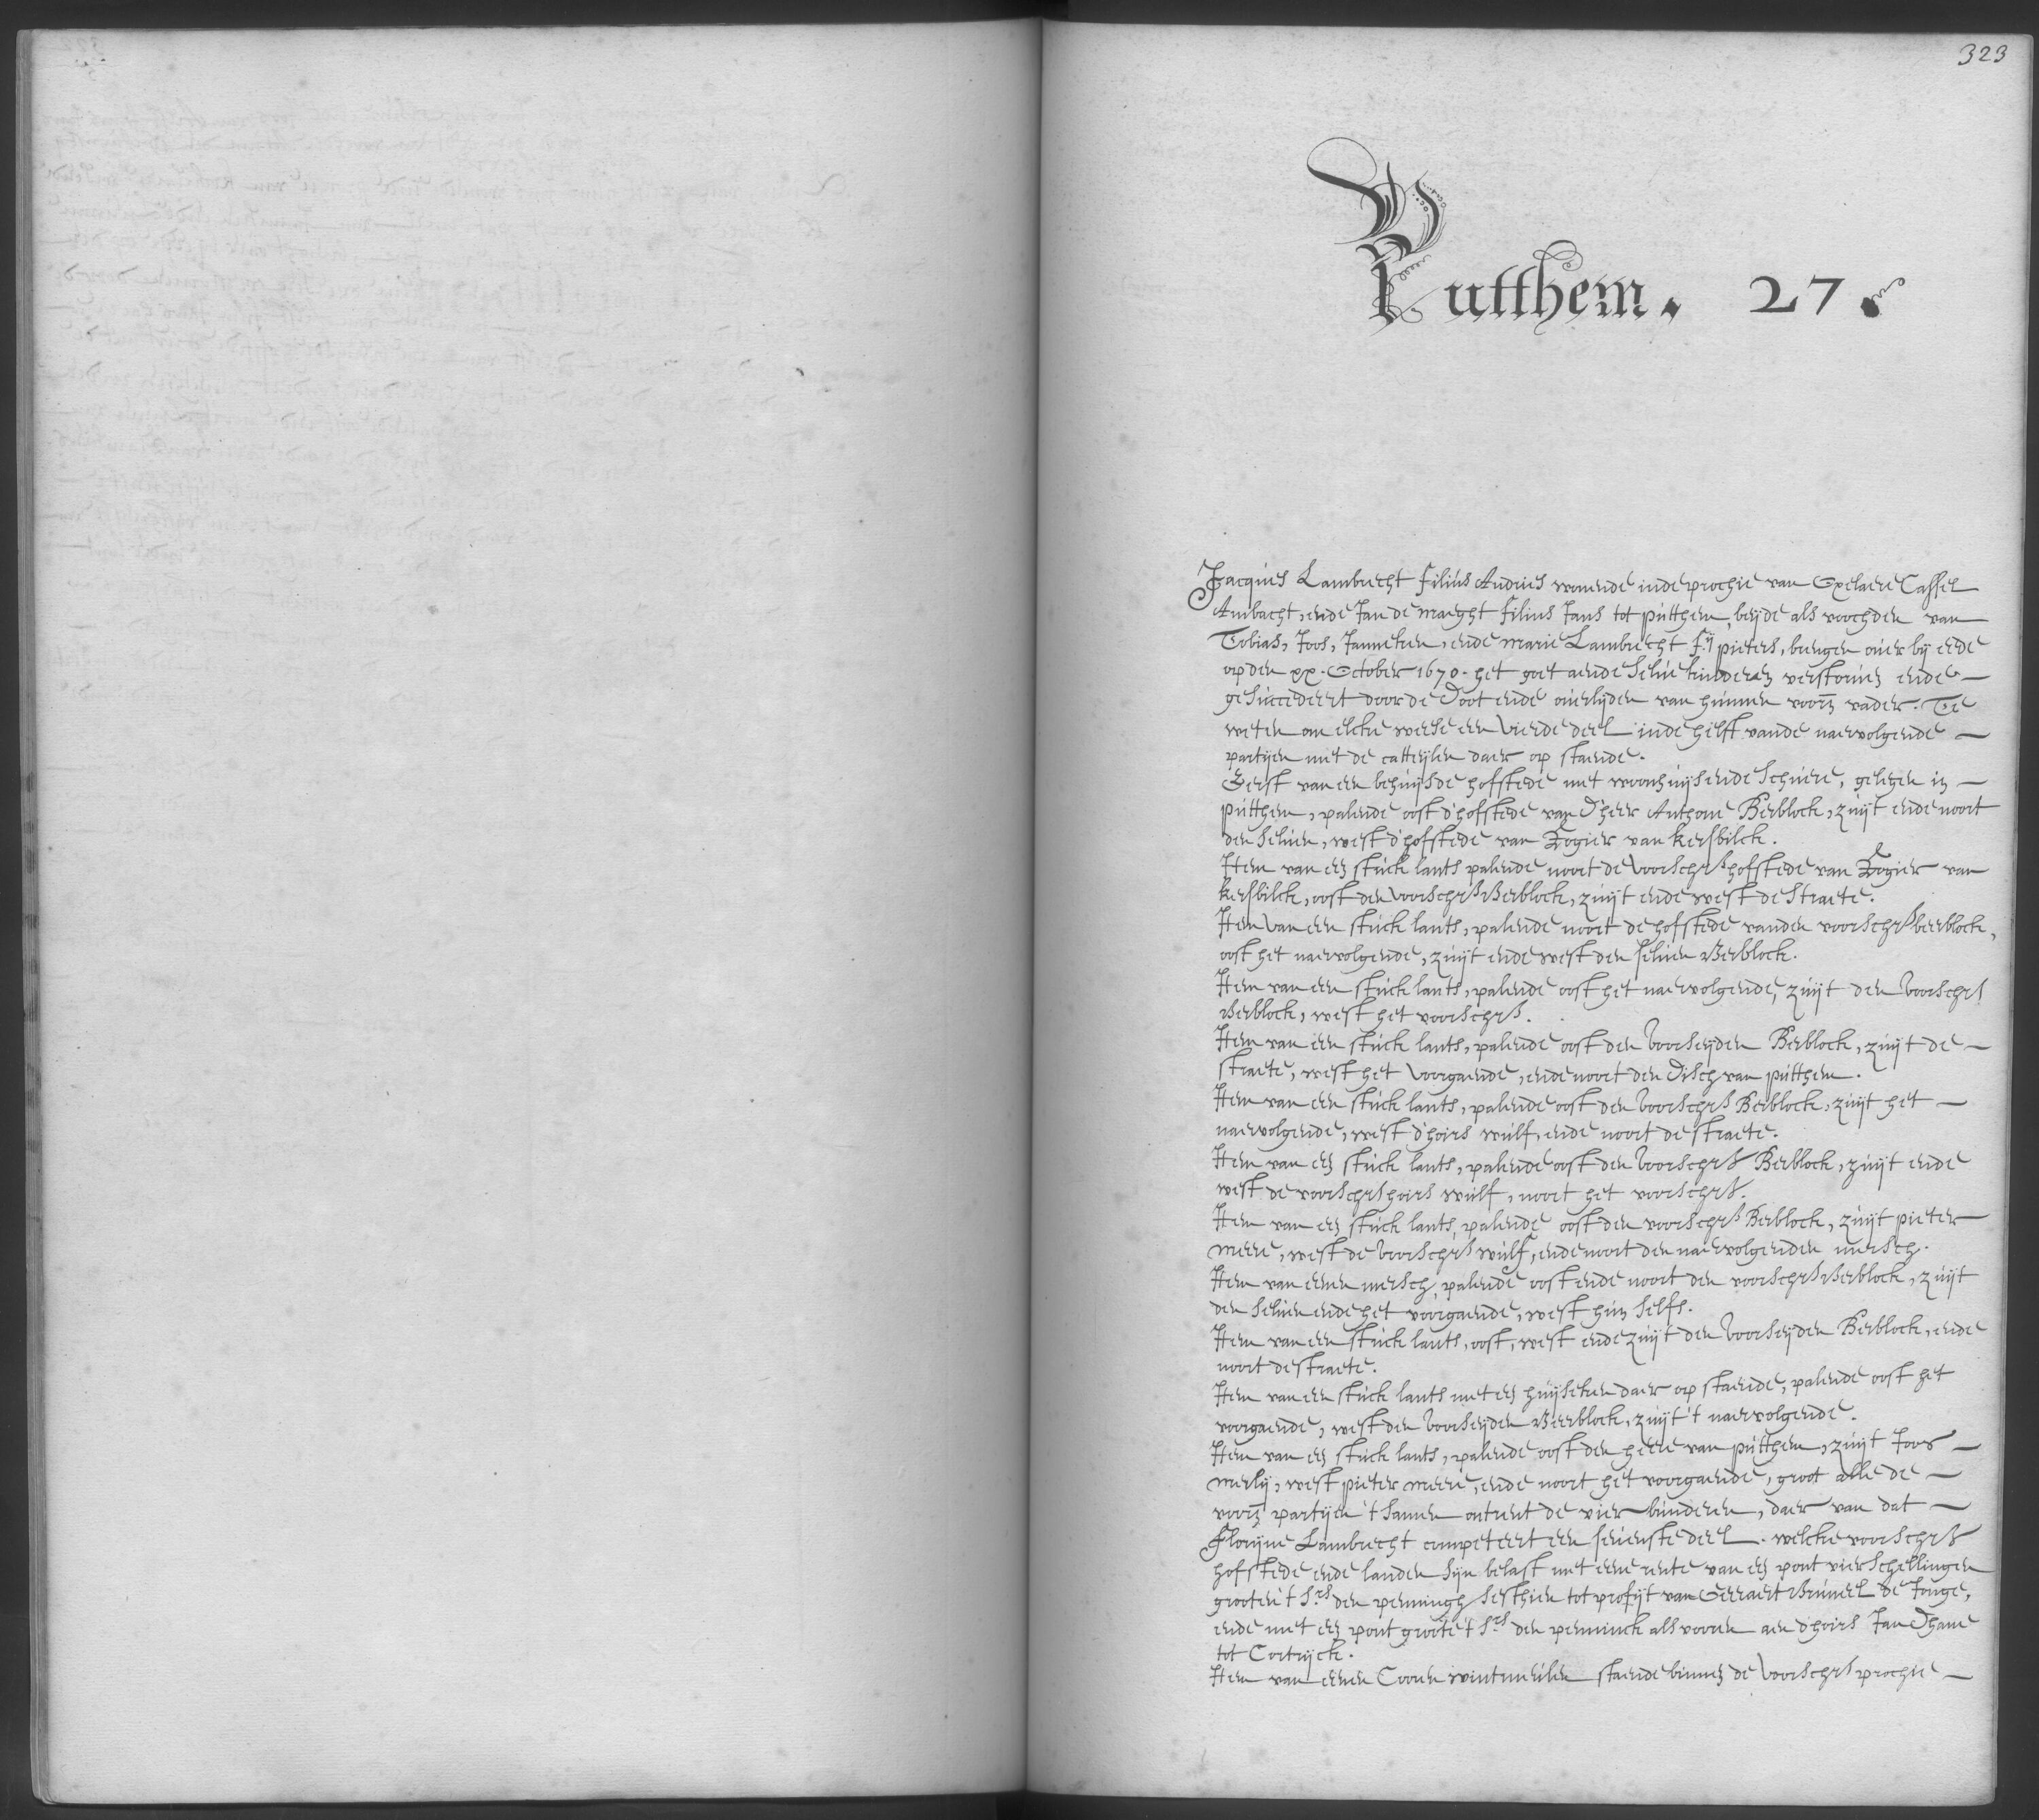 323
Putthem. 27.
Jacques Lambrecht filius Andries wonende inde prochie van Oxelaere Cassel
Ambacht, ende Jan de maeght filius Jans tot pútthem, beyde als voochden van
Tobias, Joos, Janneken, ende marie Lambrecht f.ij pieters, brengen oúer bij eede
op den xx. October 1670. het goet aende selúe kinderen verstorúen ende
gesúccedeert door de doot ende oúerlijden van húnnen voorn vader. Te
weten om elcke weese een vierde deel inde helft vande naervolgende
partijen met de catteylen daer op staende.
Eerst van een behúijsde hofstede met woonhúijs ende schúere, gelegen in
pútthem, palende oost d'hofstede van d'heer Anthone Berblock, zúijt ende noort
den selúen, west d'hofstede van Rogier van kersbilck.
Item van een stúck lants palende noort de voorschr. hofstede van Rogier van
kersbilck, oost den voorschr. Berblock, zúijt ende west de straete.
Item van een stúck lants, palende noort de hofstede vanden voorschr. beerblock,
oost het naervolgende, zúijt ende west den selúen Berblock.
Item van een stúck lants, palende oost het naervolgende, zúijt den voorschr.
Berblock, west het voorschr.
Item van een stúck lants, palende oost den voorseyden Berblock, zúijt de
straete, west het voorgaende, ende noort den disch van pútthem.
Item van een stúck lants, palende oost den voorschr. Berblock, zúijt het
naervolgende, west d'hoirs wúlf, ende noort de straete.
Item van een stúck lants, palende oost den voorschr. Berblock, zúijt ende
west de voorschr. hoirs wúlf, noort het voorschr.
Item van een stúck lants, palende oost den voorschr. Berblock, zúijt pieter
meere, west de voorschr. wúlf, ende noort den naervolgenden mersch.
Item van eenen mersch, palende oost ende noort den voorschr. Berblock, zúijt
den selúen ende het voorgaende, west hún selfs.
Item van een stúck lants, oost, west ende zúijt den voorseyden Berblock, ende
noort de straete.
Item van een stúck lants met een húijseken daer op staende, palende oost het
voorgaende, west den voorseyden Berblock, zúijt 't naervolgende.
Item van een stúck lants, palende oost den heere van pútthem, zúijt Joos
merlij, west pieter meere, ende noort het voorgaende, groot alle de
voorn partijen t'samen ontrent de vier búnderen, daer van dat
Florijne Lambrecht competeert een seúenste deel. welcke voorschr.
hofstede ende landen sijn belast met eene rente van een pont vier schellingen
grooten 't s.rs den penningh sesthien tot profijt van Geeraert Brúneel de Jonge,
ende met een pont groote 't s.rs den penninck als vooren aen d'hoirs Jan Dhane
tot Cortrijck.
Item van eenen Cooren wintmeúlen staende binnen de voorschr. prochie